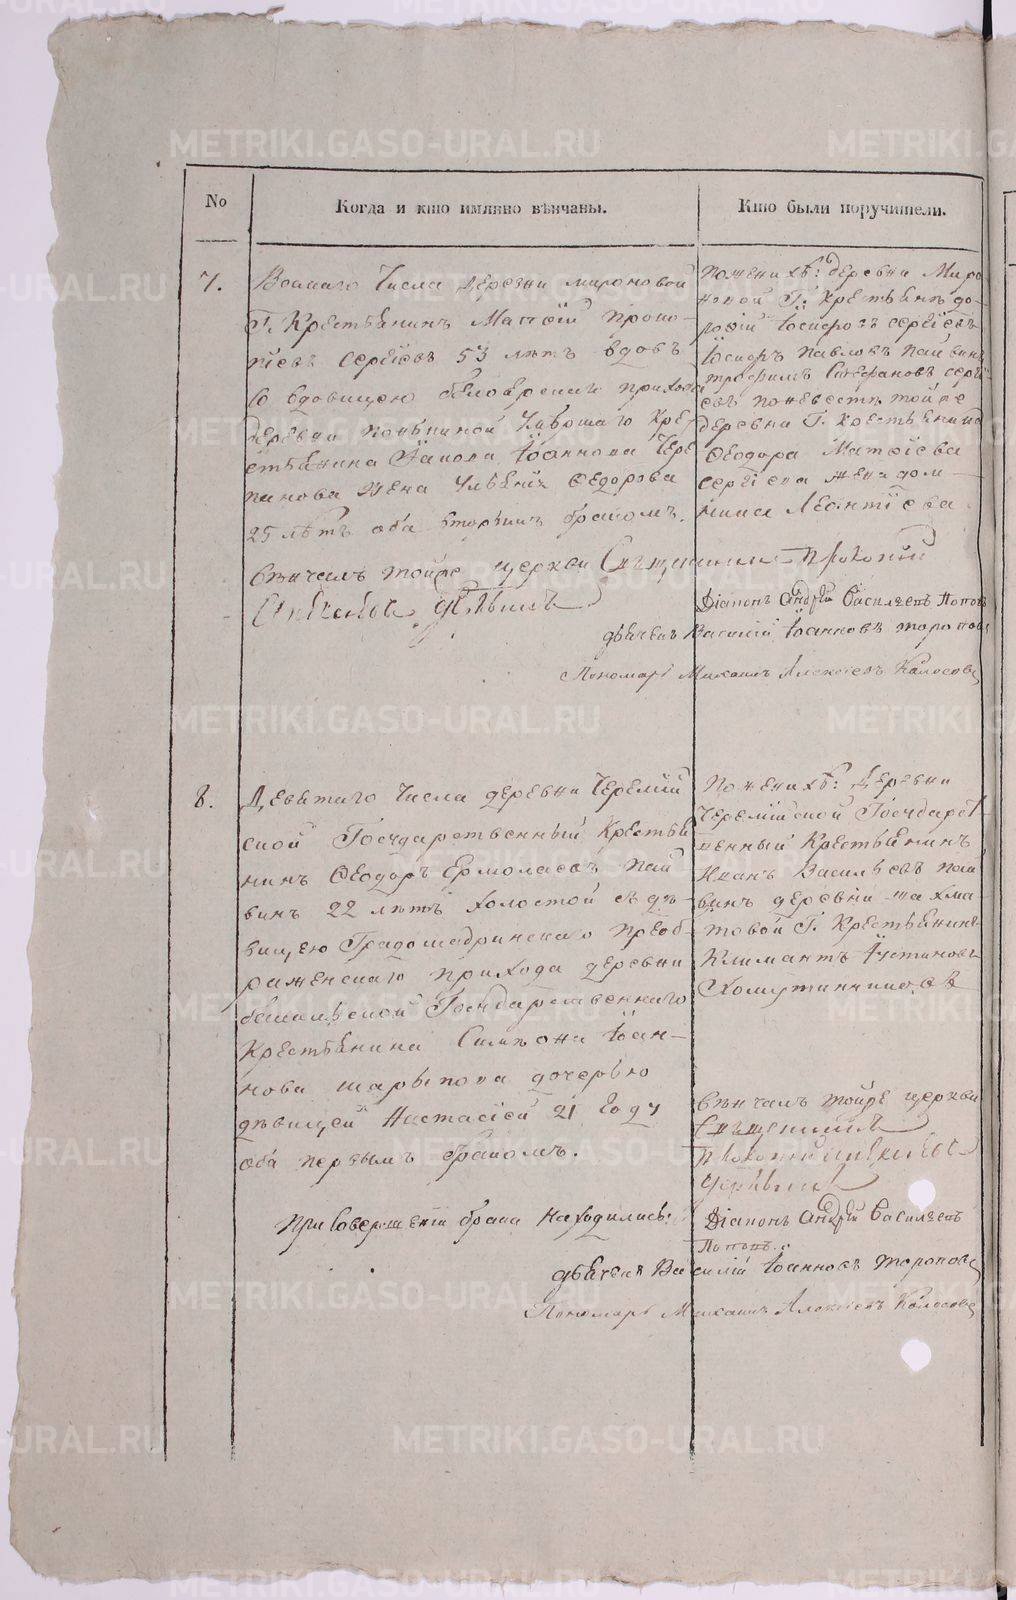 № Когда и кто имянно вѣнчаны. Кто были поручители.
7.
Восмаго Числа деревни мироновой
Г. Крестьянинъ Матѳій Проко-
піевъ Сергіевъ 53 лѣтъ вдовъ
со вдовицею бѣлоярскаго прихода
деревни
стьянина Іоаннова Чере
панова жена Ѳедорова
25 лѣтъ оба вторымъ бракомъ.
вѣнчалъ тойже церкви Священникъ Прокопій
По женихѣ: деревни Миро
новой Г. Крестьянъ до-
роѳій Іосифовъ сергіевъ
Іосифъ Павловъ Пайвинъ
трофимъ Стефановъ серги
евъ по невестѣ тойже
деревни Г. Крестьянина
Ѳеодора Матѳіева
Сергіева жена дом
ника Леонтіева
Діаконъ Андрей Васильевъ Поповъ
дьячекъ Василій Іоанновъ торопов
Пономарь Михаилъ Алексіевъ Колосовъ
8.
Девятаго Числа деревни Черемій
ской Государственный Крестья
нинъ Ѳеодоръ Ермолаевъ Пай
винъ 22 лѣтъ холостой съ дѣ-
вицею Градошадринскаго преоб-
раженскаго прихода деревни
Государственнаго
Крестьянина Симеона Іоан-
нова шарыпова дочерью
дѣвицей Настасіей 21 году
оба первымъ бракомъ.
По женихѣ: деревни
Черемійской Государст
венный Крестьянинъ
Иванъ Васильевъ пай
винъ деревни шахма-
товой Г. Крестьянинъ
Климантъ Іустиновъ
Хомутинниковъ
вѣнчалъ тойже церкви
Священникъ
Прокопій
При Совершеніи брака Находились:
Діаконъ Андрей Васильевъ
Поповъ.
дьячекъ Василій Іоанновъ торопов
Пономарь Михаилъ Алексіевъ Колосовъ
METRIKI.GASO-URAL.RU